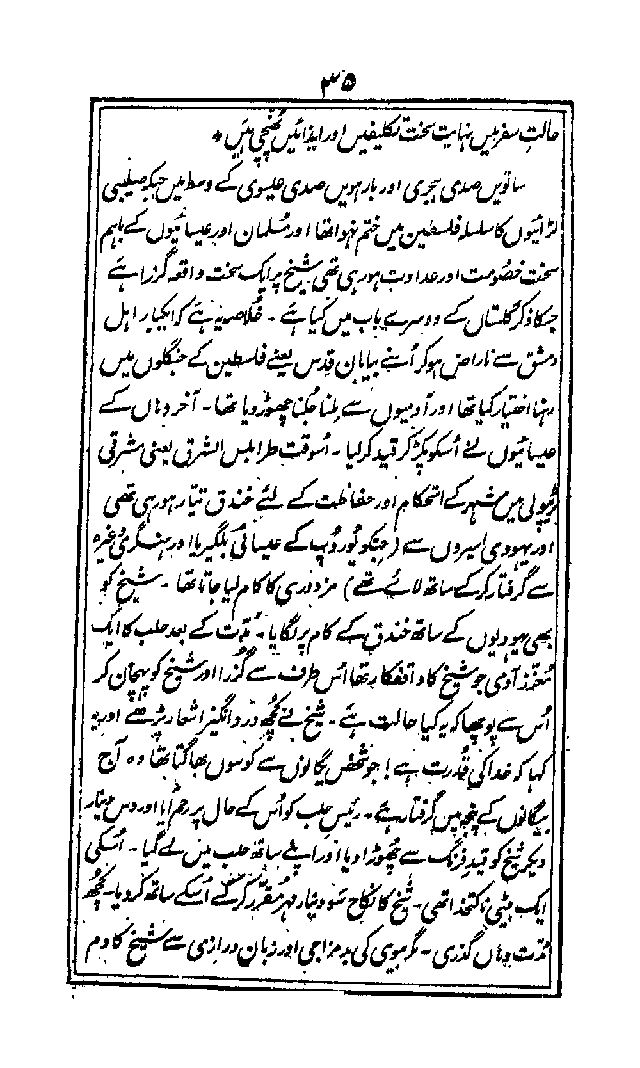 ۳۵
حالتِ سفر میں نہایت سخت تکلیفیں اور ایذائیں پُہنچی ہیں *
ساتویں صدی ہجری اور بارہویں صدی عیسوی کے وسط میں جبکہ صلیبی
لڑائیوں کا سلسلہ فلسطین میں ختم نہوا تھا اور مُسلمان اور عیسائیوں کے باہم
سخت خصومت اور عداوت ہو رہی تھی۔ شیخ پر ایک سخت واقعہ گزرا ہے
جسکا ذکر گلستاں کے دوسرے باب میں کیا ہے۔ خُلاصہ یہ ہے کہ ایکبار اہل
دمشق سے ناراض ہو کر اُسنے بیابانِ قدس یعنے فلسطین کے جنگلوں میں
رہنا اختیار کیا تھا اور آدمیوں سے ملنا جُلنا چھوڑ دیا تھا۔ آخر وہاں کے
عیسائیوں نے اُسکو پکڑ کر قید کر لیا۔ اُسوقت طرابلس الشرق یعنی مشرقی
ٹریپولی میں شہر کے استحکام اور حفاظت کے لئے خندق تیّار ہو رہی تھی
اور یہودی اسیروں سے (جنکو یُورُپ کے عیسائی بلگیریا اور ہنگری وغیرہ
سے گرفتار کر کے ساتھ لائے تھے) مزدوری کا کام لیا جاتا تھا۔ شیخ کو
بھی یہودیوں کے ساتھ خندق کے کام پر لگایا۔ مُدّت کے بعد حلب کا ایک
مُعزّز آدمی جو شیخ کا واقفکار تھا اُس طرف سے گُزرا اور شیخ کو پہچان کر
اُس سے پوچھا کہ یہ کیا حالت ہے۔ شیخ نے کُچھ درد انگیز اشعار پڑھے اور یہ
کہا کہ خدا کی قُدرت ہے! جو شخص یگانوں سے کوسوں بھاگتا تھا وہ آج
بیگانوں کے پنجہ میں گرفتار ہے۔ رئیسِ حلب کو اُس کے حال پر رحم آیا اور دس دینار
دیکر شیخ کو قیدِ فرنگ سے چُھوڑا دیا اور اپنے ساتھ حلب میں لے گیا۔ اُسکی
ایک بیٹی ناکتخدا تھی۔ شیخ کا نکاح سَو دینار مہر مُقرّر کر کے اُسکے ساتھ کر دیا۔ کُچھ
مُدّت وہاں گُذری۔ مگر بیوی کی بدمزاجی اور زبان درازی سے شیخ کا دم